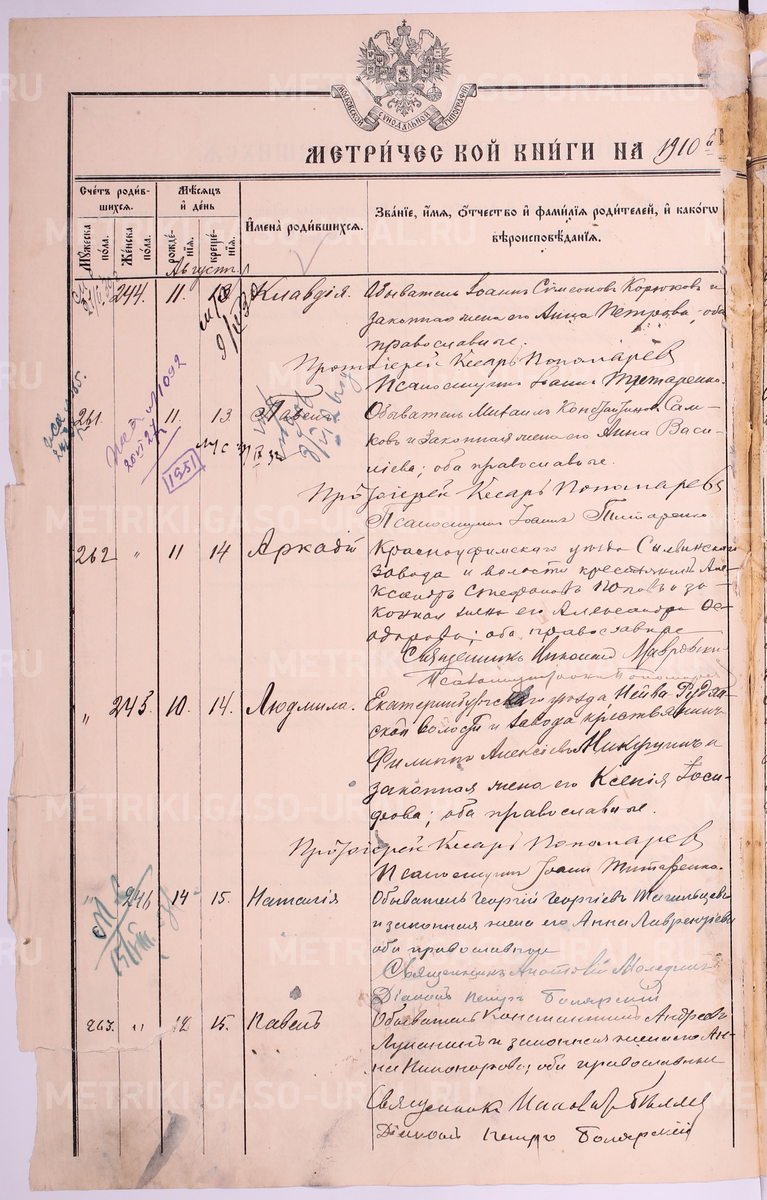 МЕТРИЧЕСКОЙ КНИГИ НА 1910 й
Счетъ родившихся.
Мужеска пола.
Женска пола.
Мѣсяцъ и день
рожденія.
крещенія.
Имена родившихся.
Званіе, имя, отчество и фамилія родителей, и какогѡ вѣроисповѣданія.
Августъ
244. 11. 13 Клавдія.
Обыватель Іоаннъ Симеоновъ Корюковъ и
законная жена его Анна Петрова, оба
православные.
Протоіерей Кесарь Пономаревъ
Псаломщикъ Іоаннъ Титаренко.
261. 11. 13 Павелъ
№ 1092
1951
Обыватель Михаилъ
и законная жена его Анна Васи-
лiева; оба православные.
Протоіерей Кесарь Пономаревъ
Псаломщикъ Іоаннъ Титаренко
262 " 11 14 Аркадій
Красноуфимскаго уѣзда Сылвинскаго
завода и волости крестьянинъ Але-
ксандръ Стефановъ Поповъ и за-
конная жена его Александра Ѳе-
одорова; оба православные
Священникъ Николай
" 245. 10. 14. Людмила.
Екатеринбургскаго уѣзда Нейво Рудян-
ской волости и завода крестьянинъ
Филиппъ Алексіевъ Микушинъ и
законная жена его Ксенія Іоси-
фова; оба православные.
Протоіерей Кесарь Пономаревъ
Псаломщикъ Іоаннъ Титаренко.
" 246 14 15. Наталія
Обыватель Георгій Георгіевъ Тагильцевъ
и законная жена его Анна Лаврентіева
оба православные
Священникъ Анатолій
Діаконъ Петръ Болярскій
263. " 12 15. Павелъ
Обыватель Константинъ Андреевъ
Лупанинъ и законная жена его Ан-
на Никонорова; оба православные
Священникъ
Діаконъ Петръ Болярскій
METRIKI.GASO-URAL.RU